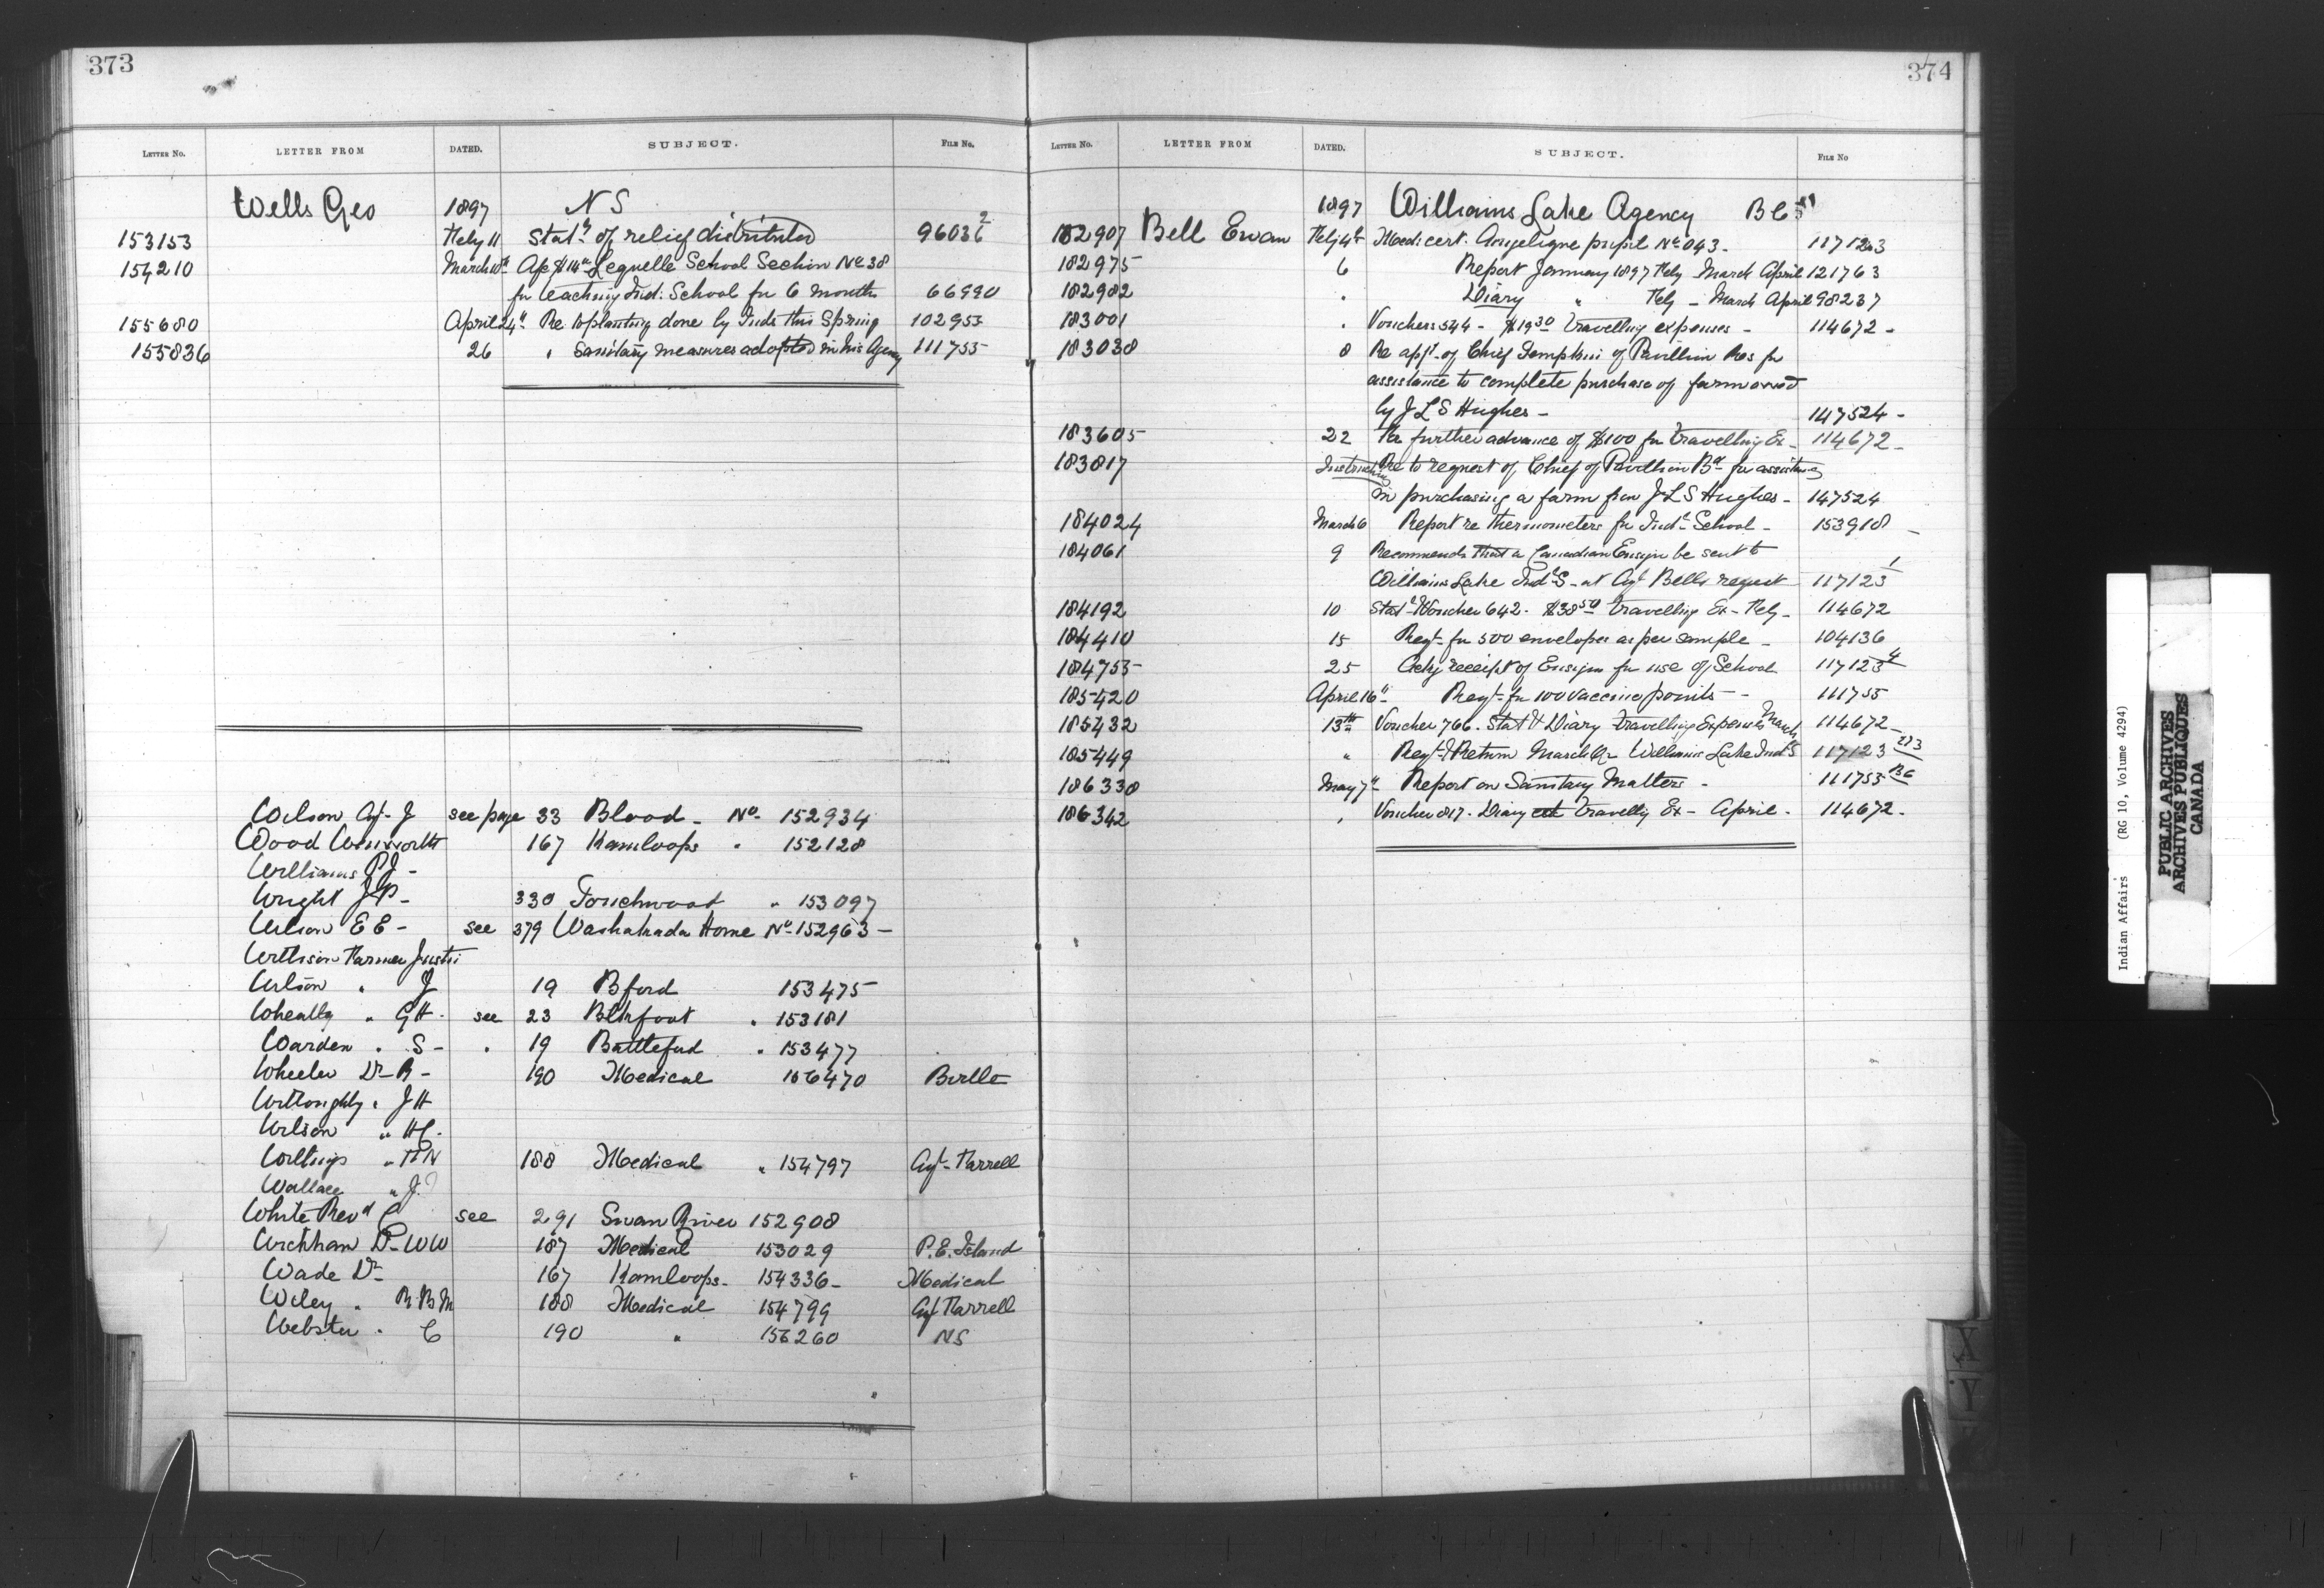 373
LETTER No. LETTER FROM DATED. SUBJECT. FILE No.
Wells Geo 1897 N S
153153 Feby 11 Statt of relief distributed 96036 2
154210 March 10th Lequelle School Section No 38
for teaching Ind: School for 6 months 66990
155680 April 24th Re planting done by Inds this Spring 102953
155836 26 " Sanitary measures adopted in his Agency 111755
Wilson Agt J see page 33 Blood - No 152934
Wood Wentworth 167 Kamloops " 152128
Williams P J -
Wright J P - 330 Touchwood " 153097
Wilson E E - see 379 Washakada Home No 152963 -
Willison Farmer Justin
Wilson " J 19 Bford 153475
Wheatly " G H - see 23 Blkfoot " 153181
Warden " S - " 19 Battleford " 153477
Wheeler Dr R - 190 Medical 156470 Birtle
Willoughby " J H
Wilson " H C -
" H N 188 Medical " 154797 Agt Farrell
Wallace " J ?
White Revd see 291 Swan River 152908
Wickham Dr W W 187 Medical 153029 P. E. Island
Wade Dr 167 Kamloops - 154336 - Medical
Wiley " R. B. M 188 Medical 154799 Agt Farrell
Webster " C 190 " 156260 N S
374
LETTER No. LETTER FROM DATED. SUBJECT. FILE No
1897 Williams Lake Agency B C
182907 Bell Ewan Feby 4th Medl cert. Angelique pupil No 043 - 117123
182975 6 Report January 1897 Feby March April 121763
182982 " Diary " Feby - March April 98237
183001 " Vouchers 544 - $19 30 travelling expenses - 114672 -
183038 8 Re appn of Chief Tompkin of Pavillion Res for
assistance to complete purchase of farm owned
by J L S Hughes - 147524 -
183605 22 Re further advance of $100 for travelling Ex - 114672 -
183817 Instruction Re to request of Chief of Pavillion Bd for assistance
in purchasing a farm from J L S Hughes - 147524
184024 March 6 Report re thermometers for Indl School - 153918 -
184061 9 Recommends that a Canadian Ensign be sent to
Williams Lake Indl S - at Agt Bells request 117123 1
184192 10 Statt & Voucher 642 - $38 50 travelling Ex - Feby - 114672
184410 15 Reqt for 500 envelopes as per sample - 104136
184755 25 Ackg receipt of Ensign for use of School 117123 4
185420 April 16th Reqt for 100 vaccine points - - 111755
185432 13th Voucher 766. Statt & Diary travelling Expenses March 114672 -
185449 " Reqt & Return March Qr Williams Lake Indl S 117123
186338 May 7th Report on Sanitary Matters - 111755 BC
186342 " Voucher 817 - Diary travellg Ex - April - 114672 -
X
Y
Indian Affairs (RG 10, Volume 4294)
PUBLIC ARCHIVES
ARCHIVES PUBLIQUES
CANADA